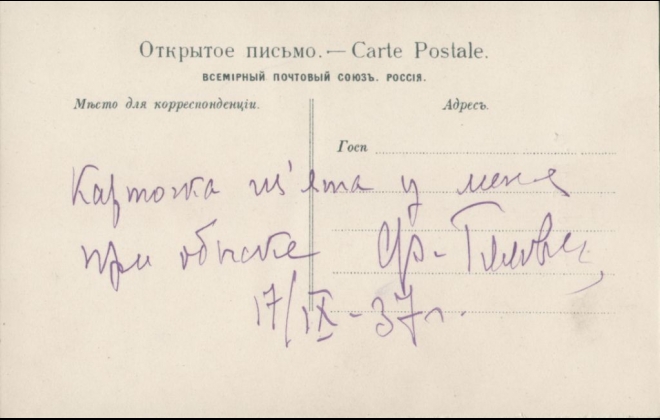 Открытое письмо. — Carte Postale.
ВСЕМІРНЫЙ ПОЧТОВЫЙ СОЮЗЪ. РОССІЯ.
Мѣсто для корреспонденціи.
Адресъ.
Госп
Карточка из'ята у меня
при обыске
17/IX-37г.